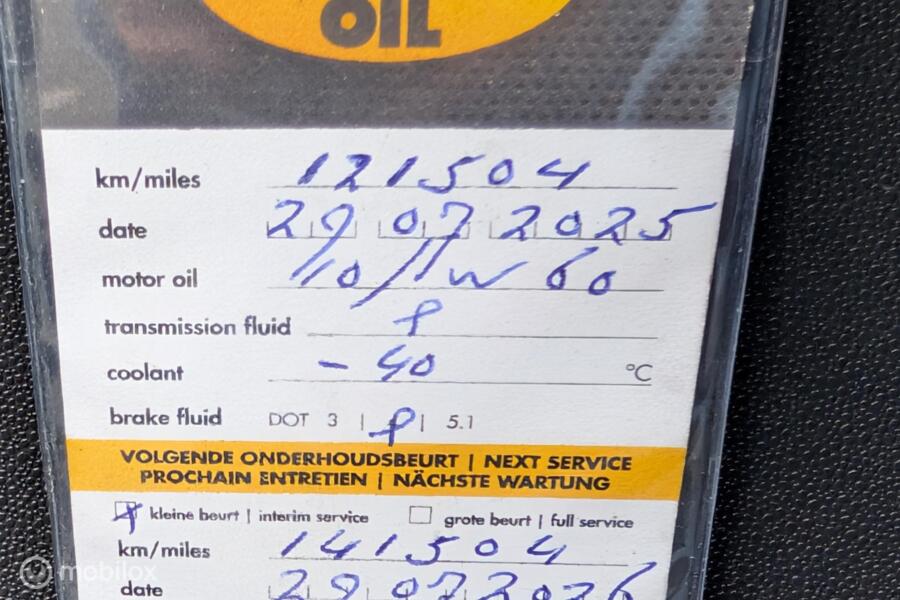 OIL
km/miles 121504
date 29 07 2025
motor oil 10/W 60
transmission fluid
coolant - 40 °C
brake fluid DOT 3 | | 5.1
VOLGENDE ONDERHOUDSBEURT | NEXT SERVICE
PROCHAIN ENTRETIEN | NÄCHSTE WARTUNG
kleine beurt | interim service grote beurt | full service
km/miles 141504
date 29 07 2026
mobilox